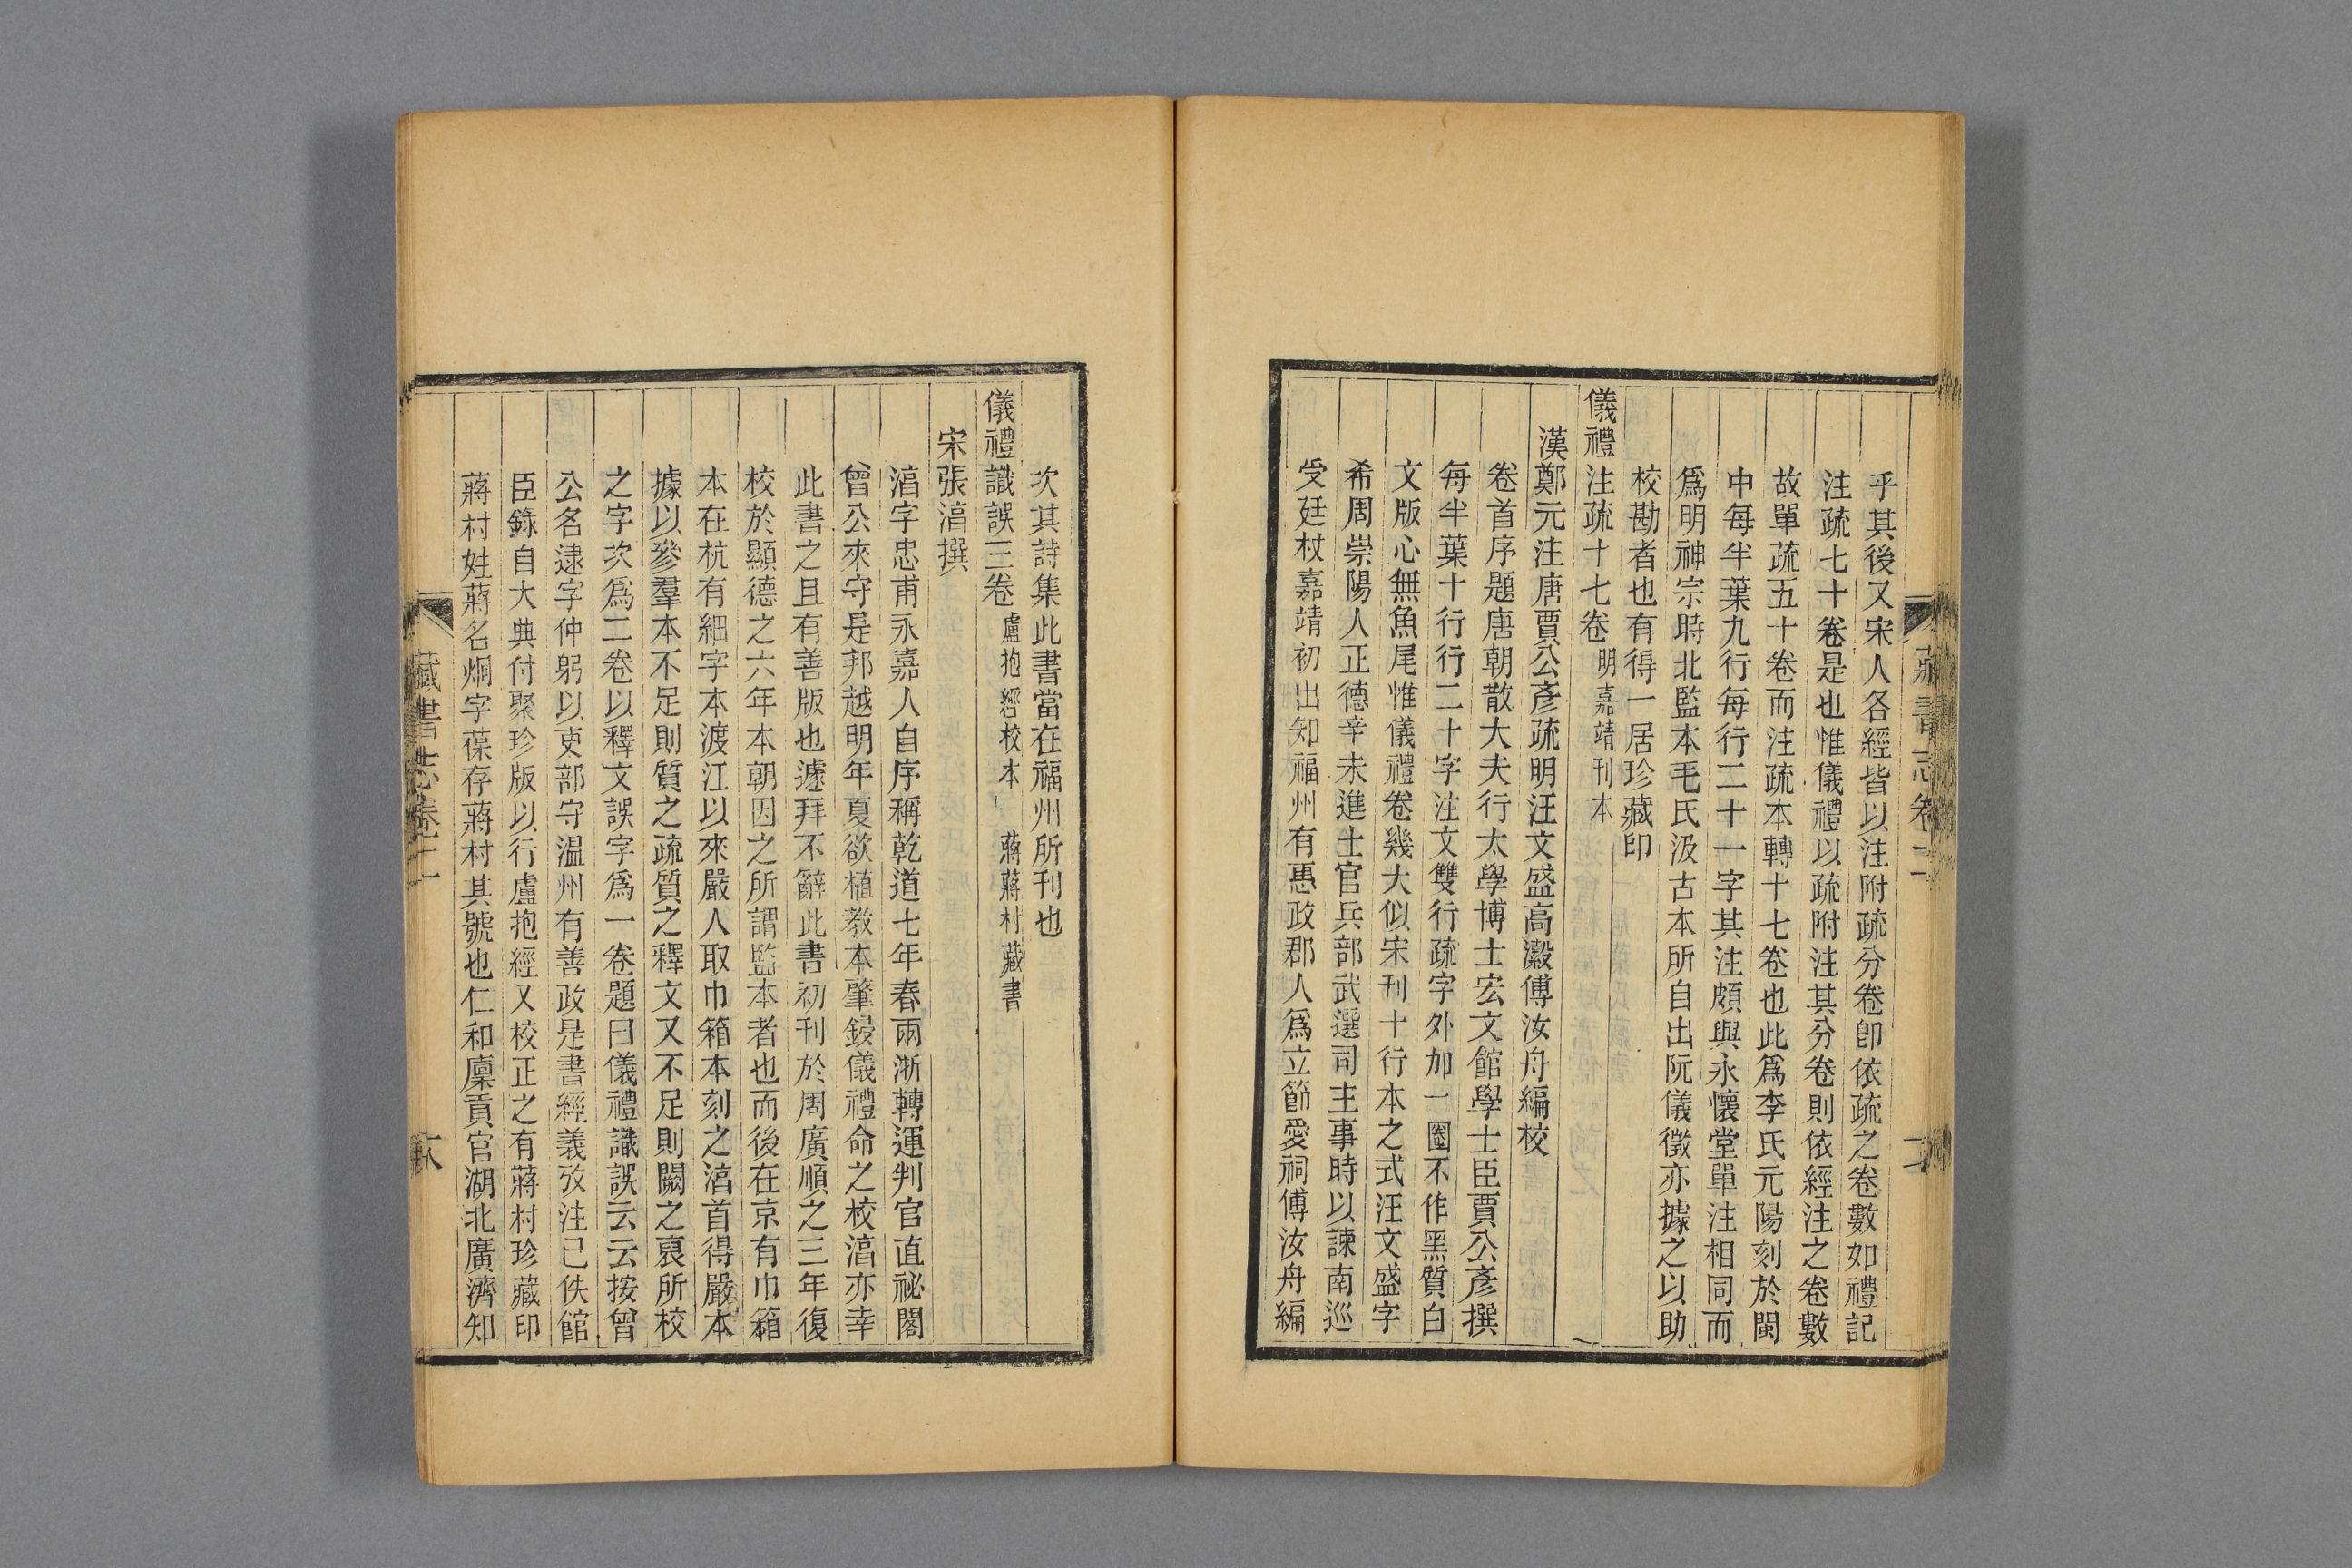 乎其後又宋人各經皆以注附疏分卷卽依疏之卷數如禮記
注疏七十卷是也惟儀禮以疏附注其分卷則依經注之卷數
故單疏五十卷而注疏本轉十七卷也此爲李氏元陽刻於閩
中每半葉九行每行二十一字其注頗與永懷堂單注相同而
爲明神宗時北監本毛氏汲古本所自出阮儀徵亦據之以助
校勘者也有得一居珍藏印
儀禮注疏十七卷 明嘉靖刊本
漢鄭元注唐賈公彥疏明汪文盛高瀫傅汝舟編校
卷首序題唐朝散大夫行太學博士宏文館學士臣賈公彥撰
每半葉十行行二十字注文雙行疏字外加一圈不作黑質白
文版心無魚尾惟儀禮卷幾大似宋刊十行本之式汪文盛字
希周崇陽人正德辛未進士官兵部武選司主事時以諫南巡
受廷杖嘉靖初出知福州有惠政郡人爲立節愛祠傅汝舟編
次其詩集此書當在福州所刊也
儀禮識誤三卷 盧抱經校本 蔣蔣村藏書
宋張淳撰
淳字忠甫永嘉人自序稱乾道七年春兩浙轉運判官直祕閣
曾公來守是邦越明年夏欲植教本肇鋟儀禮命之校淳亦幸
此書之且有善版也遽拜不辭此書初刊於周廣順之三年復
校於顯德之六年本朝因之所謂監本者也而後在京有巾箱
本在杭有細字本渡江以來嚴人取巾箱本刻之淳首得嚴本
據以參羣本不足則質之疏質之釋文又不足則闕之裒所校
之字次爲二卷以釋文誤字爲一卷題曰儀禮識誤云云按曾
公名逮字仲躬以吏部守溫州有善政是書經義攷注已佚館
臣錄自大典付聚珍版以行盧抱經又校正之有蔣村珍藏印
蔣村姓蔣名炯字葆存蔣村其號也仁和廩貢官湖北廣濟知
藏書志卷二